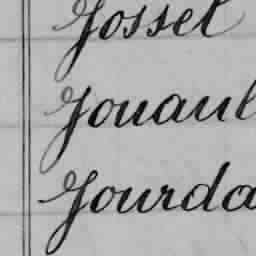 Josset
Jouaul
Jourda